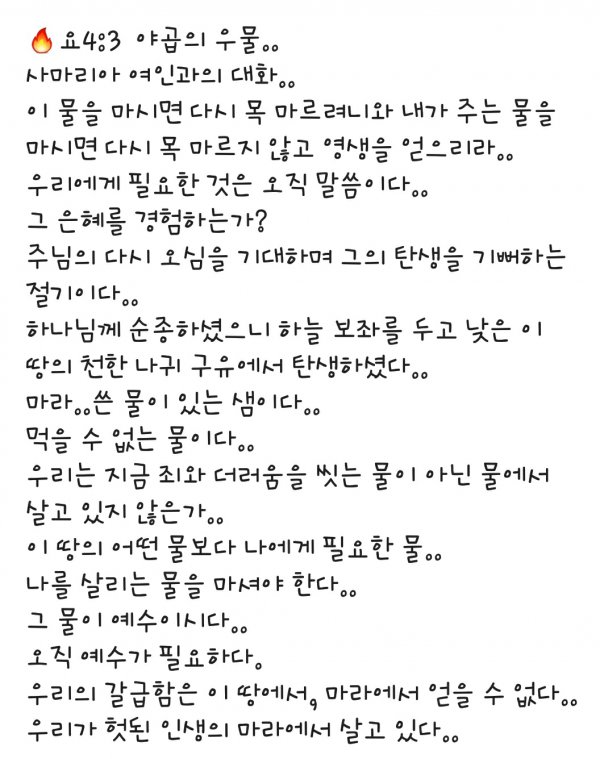 🔥 요4:3 야곱의 우물..
사마리아 여인과의 대화..
이 물을 마시면 다시 목 마르려니와 내가 주는 물을
마시면 다시 목 마르지 않고 영생을 얻으리라..
우리에게 필요한 것은 오직 말씀이다..
그 은혜를 경험하는가?
주님의 다시 오심을 기대하며 그의 탄생을 기뻐하는
절기이다..
하나님께 순종하셨으니 하늘 보좌를 두고 낮은 이
땅의 천한 나귀 구유에서 탄생하셨다..
마라..쓴 물이 있는 샘이다..
먹을 수 없는 물이다..
우리는 지금 죄와 더러움을 씻는 물이 아닌 물에서
살고 있지 않은가..
이 땅의 어떤 물보다 나에게 필요한 물..
나를 살리는 물을 마셔야 한다..
그 물이 예수이시다..
오직 예수가 필요하다.
우리의 갈급함은 이 땅에서, 마라에서 얻을 수 없다..
우리가 헛된 인생의 마라에서 살고 있다..